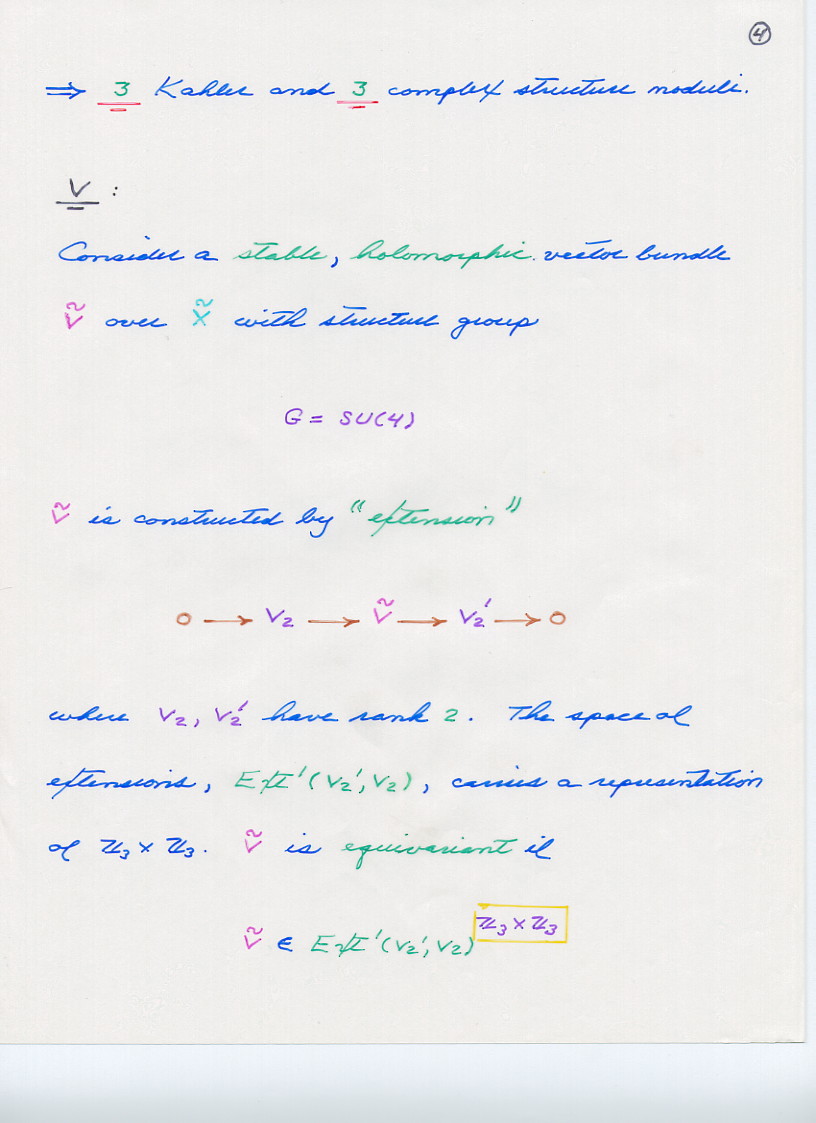 ④
⇒ 3 Kahler and 3 complex structure moduli.
V :
Consider a stable, holomorphic vector bundle
Ṽ over X̃ with structure group
G = SU(4)
Ṽ is constructed by "extension"
0 → V₂ → Ṽ → V₂′ → 0
where V₂, V₂′ have rank 2. The space of
extensions, Ext¹(V₂′, V₂), carries a representation
of ℤ₃ × ℤ₃. Ṽ is equivariant if
Ṽ ∈ Ext¹(V₂′, V₂)^ℤ₃ × ℤ₃